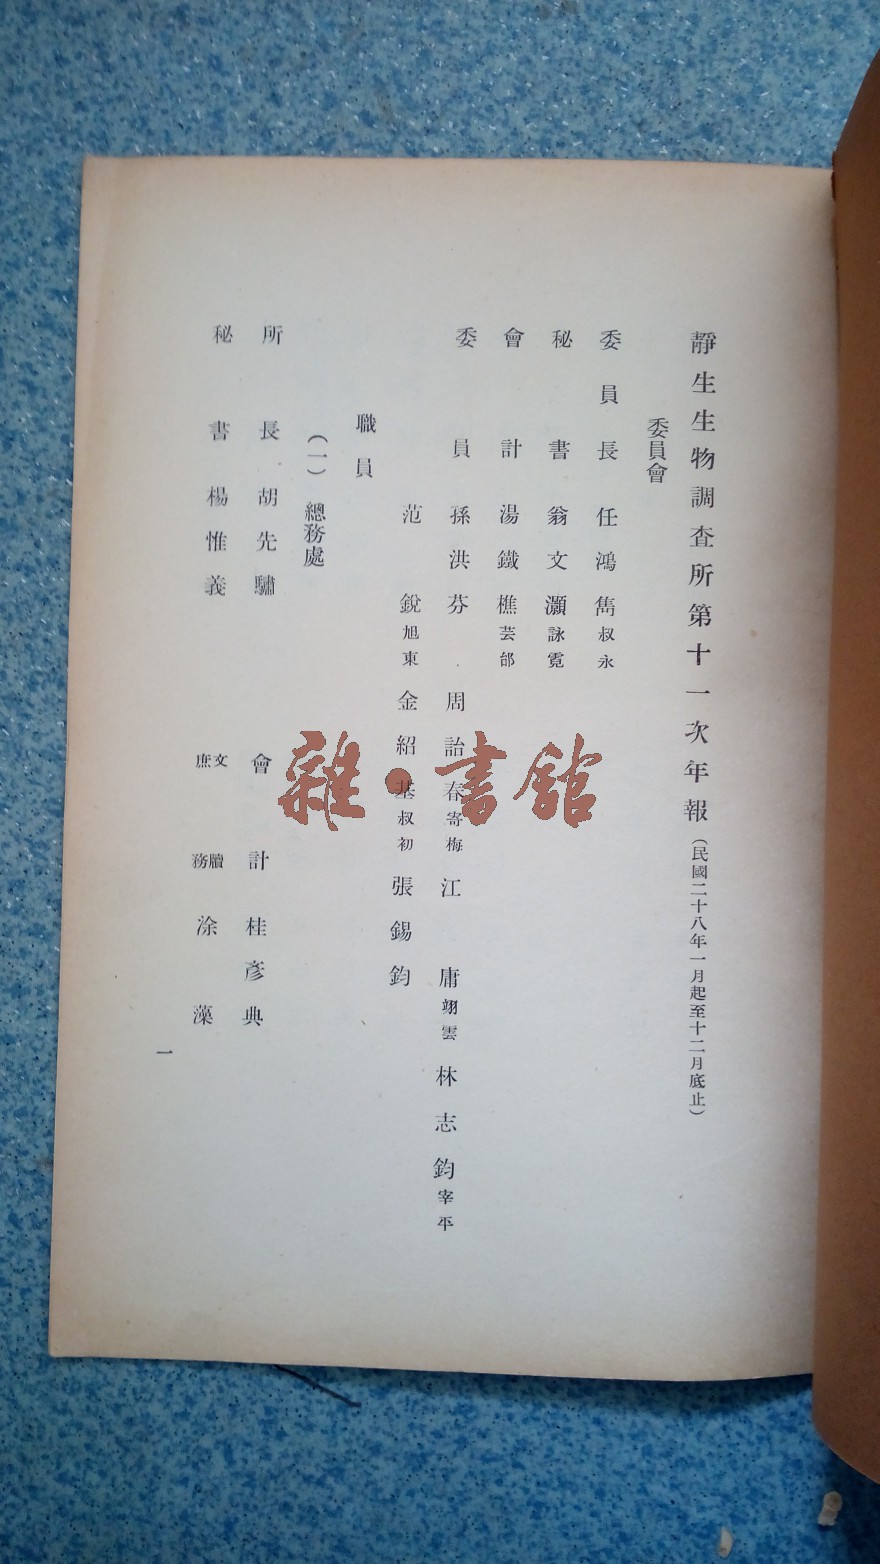 靜生生物調查所第十一次年報(民國二十八年一月起至十二月底止)
委員會
委員長 任鴻雋叔永
秘書 翁文灝詠霓
會計 湯鐵樵芸邰
委員 孫洪芬 周詒春寄梅 江庸翊雲 林志鈞宰平
范銳旭東 金紹基叔初 張錫鈞
職員
(一)總務處
所長 胡先驌 會計 桂彥典
秘書 楊惟義 文牘庶務 涂藻
一
雜·書館